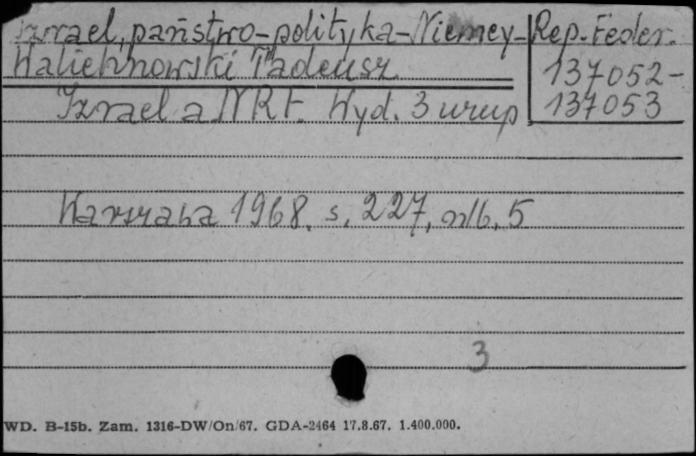 Izrael, państwo-polityka-Niemcy-Rep. Feder.
Walichnowski Tadeusz
137052-
137053
Izrael a NRF. Wyd. 3 uzup
Warszawa 1968. s. 227, nlb. 5
3
WD. B-15b. Zam. 1316-DW/On/67. GDA-2464 17.8.67. 1.400.000.